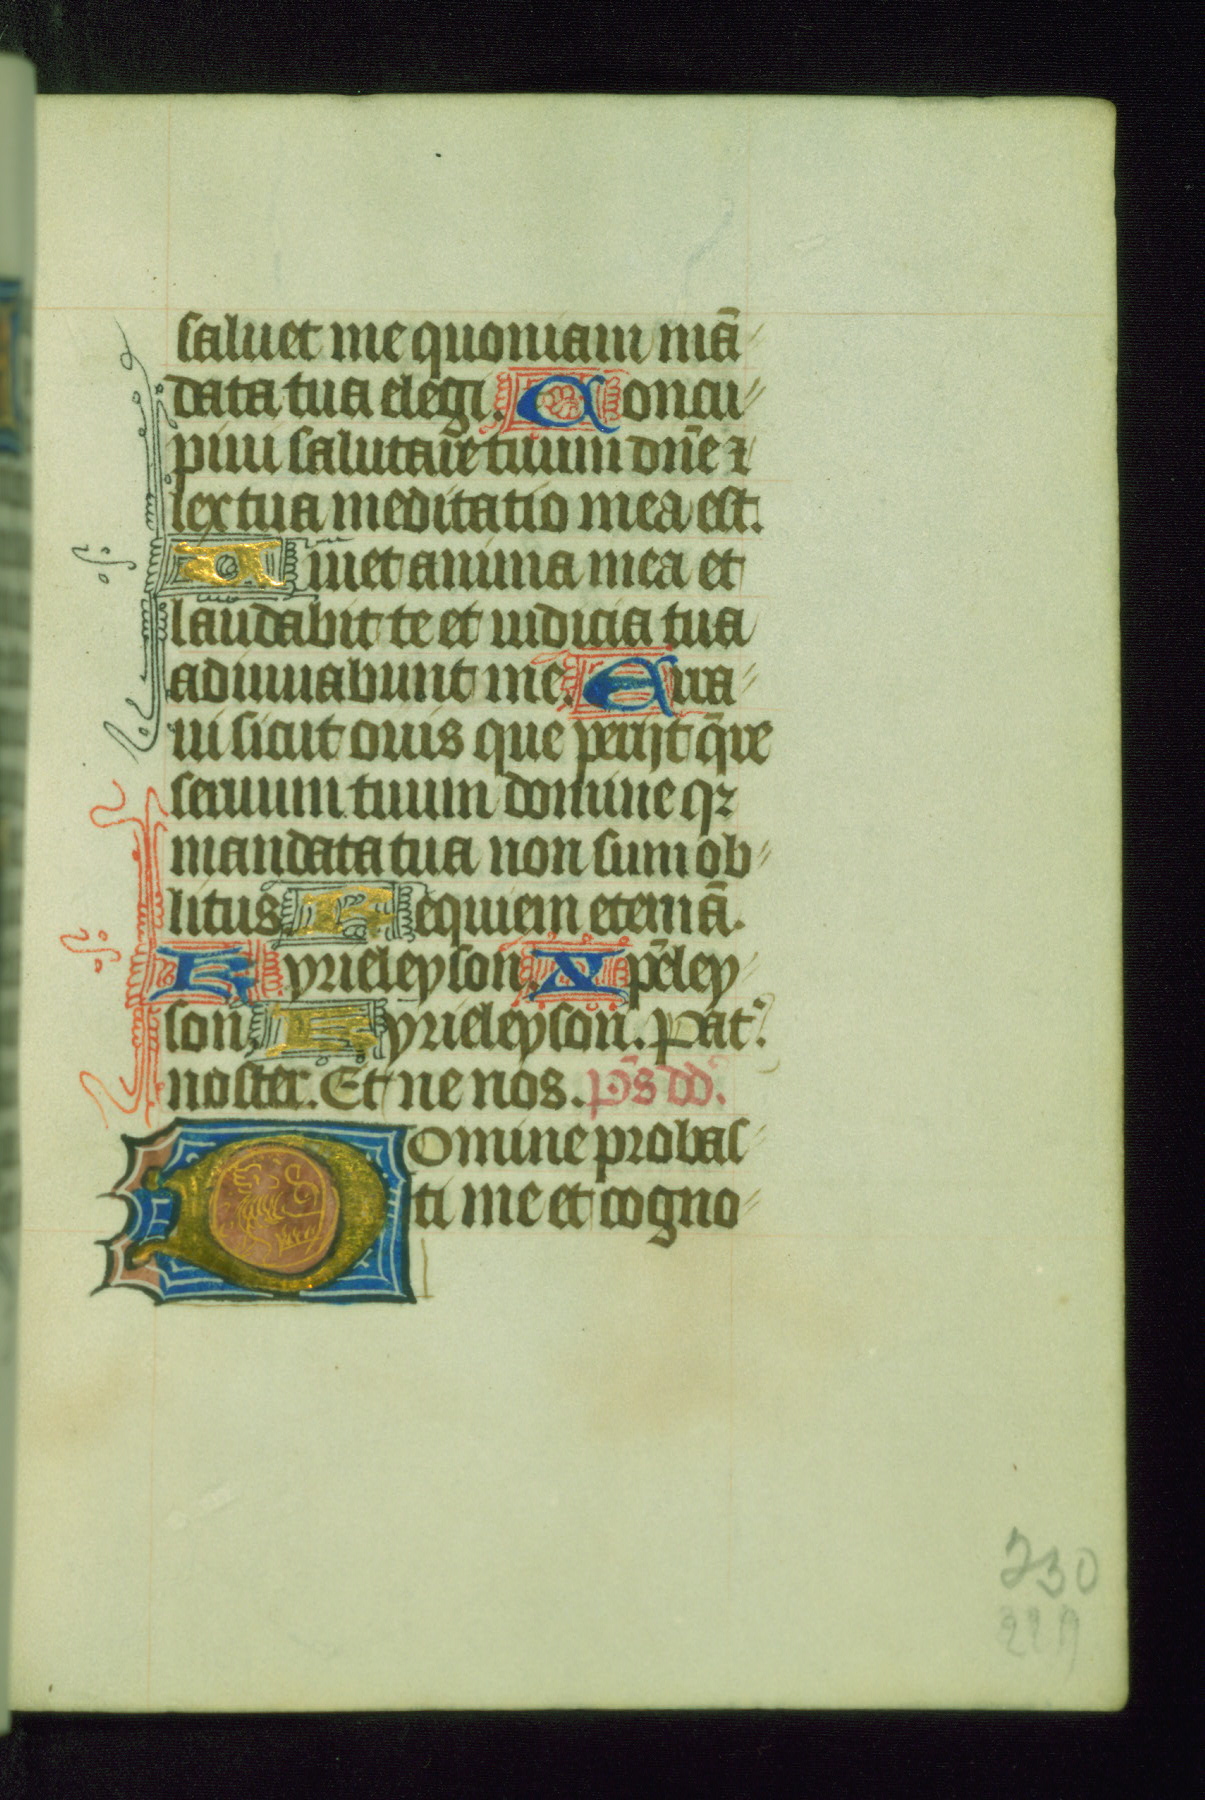 saluet me quoniam mā
data tua elegi. Concu
piui salutare tuum dn̄e ⁊
lex tua meditatio mea est.
Uiuet anima mea et
laudabit te et iudicia tua
adiuuabunt me. Erra
ui sicut ouis que perijt q̄re
seruum tuum domine qꝛ
mandata tua non sum ob
litus Requiem eternā.
Kyrieleyson. Xp̄eley
son. Kyrieleyson. Pat᷑
noster. Et ne nos. p̄s dd.
Domine probas
ti me et cogno
230